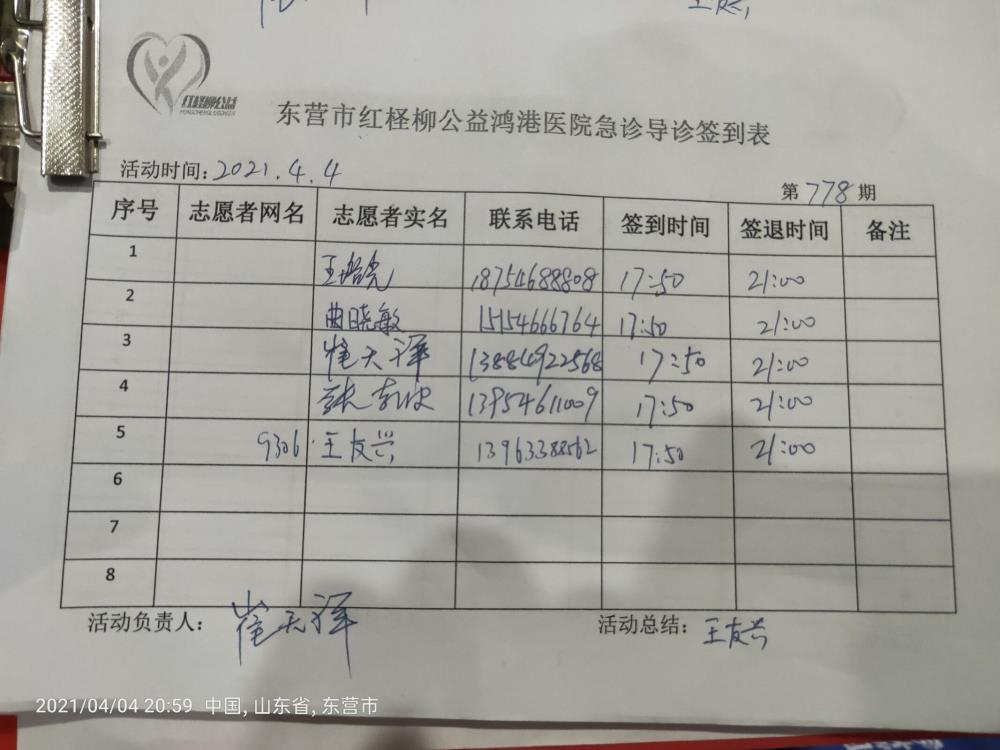 红柽柳公益
东营市红柽柳公益鸿港医院急诊导诊签到表
活动时间:2021.4.4
第778期
序号 志愿者网名 志愿者实名 联系电话 签到时间 签退时间 备注
1 王 18754688808 17:50 21:00
2 曲晓敏 15154666764 17:50 21:00
3 崔天泽 13884922568 17:50 21:00
4 张 13954611009 17:50 21:00
5 9306 王友兴 13963388562 17:50 21:00
6
7
8
活动负责人: 崔天泽
活动总结: 王友兴
2021/04/04 20:59 中国, 山东省, 东营市